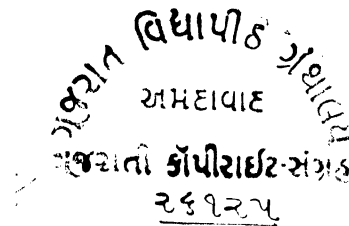 ગૂજરાત વિદ્યાપીઠ ગ્રંથાલય
અમદાવાદ
ગૂજરાતી કૉપીરાઈટ-સંગ્રહ
૨૬૧૨૫